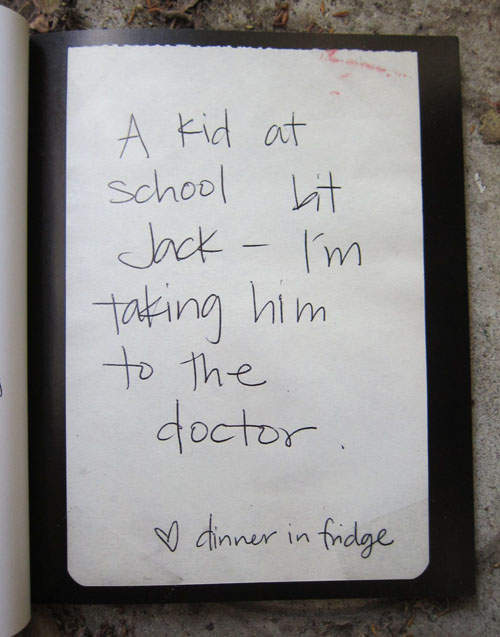 A kid at
school bit
Jack - I'm
taking him
to the
doctor.
♡ dinner in fridge